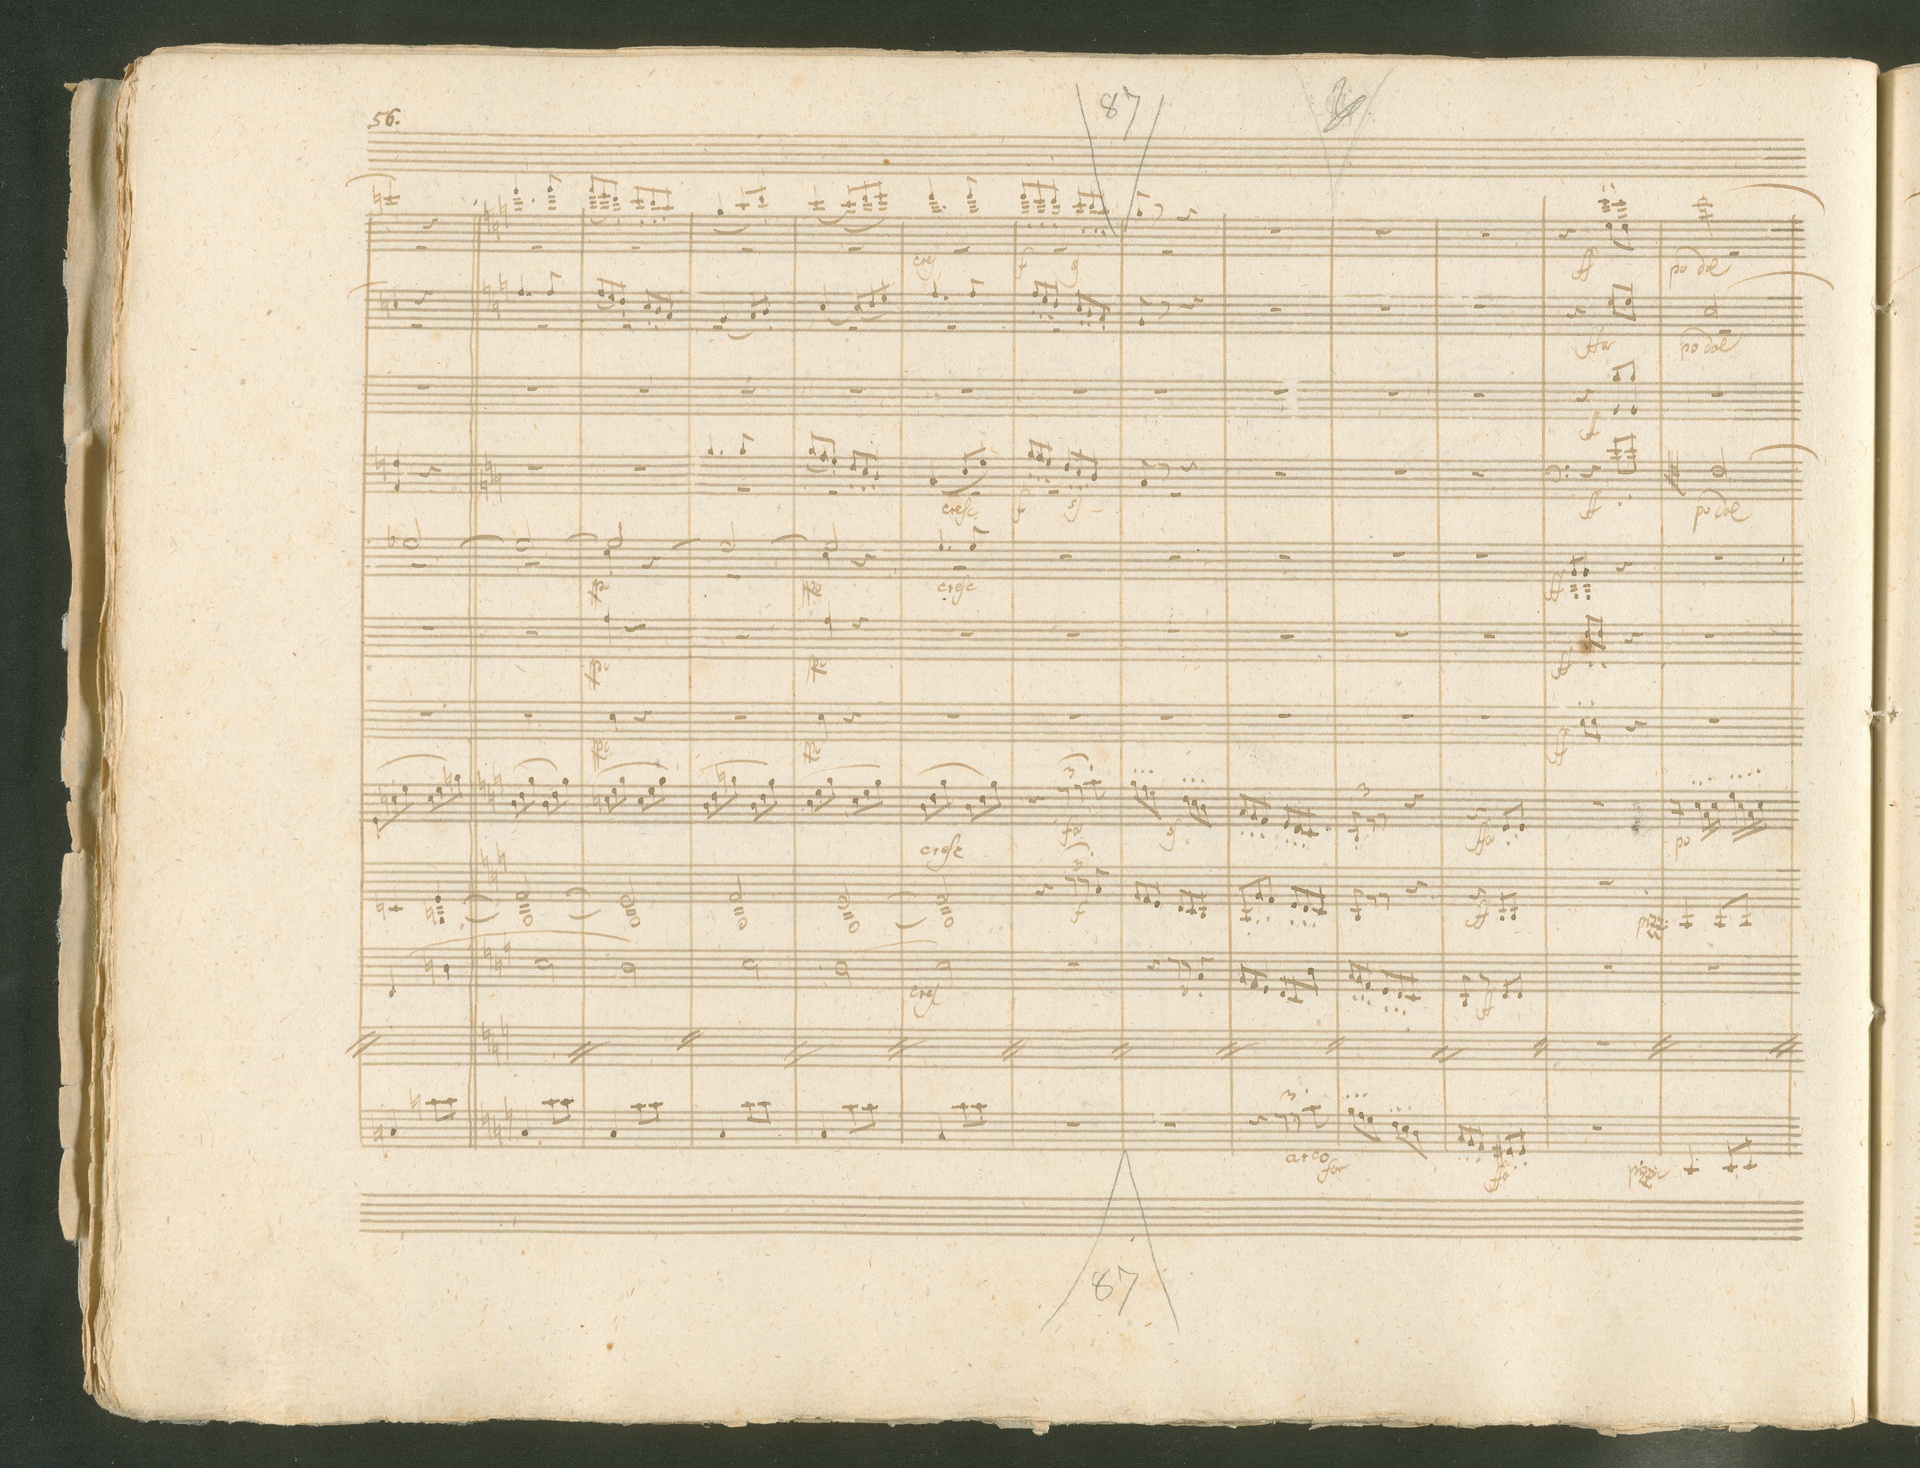 56.
87
cresc f sf ff po dol
ffor po dol
ff
cresc f sf ff po dol
fp fp cresc ff
fp fp ff
fp fp ff
3 3
cresc fo sf ffo po
3
f ff pizz
3
cresc ff
3
arco for ffo pizz
87